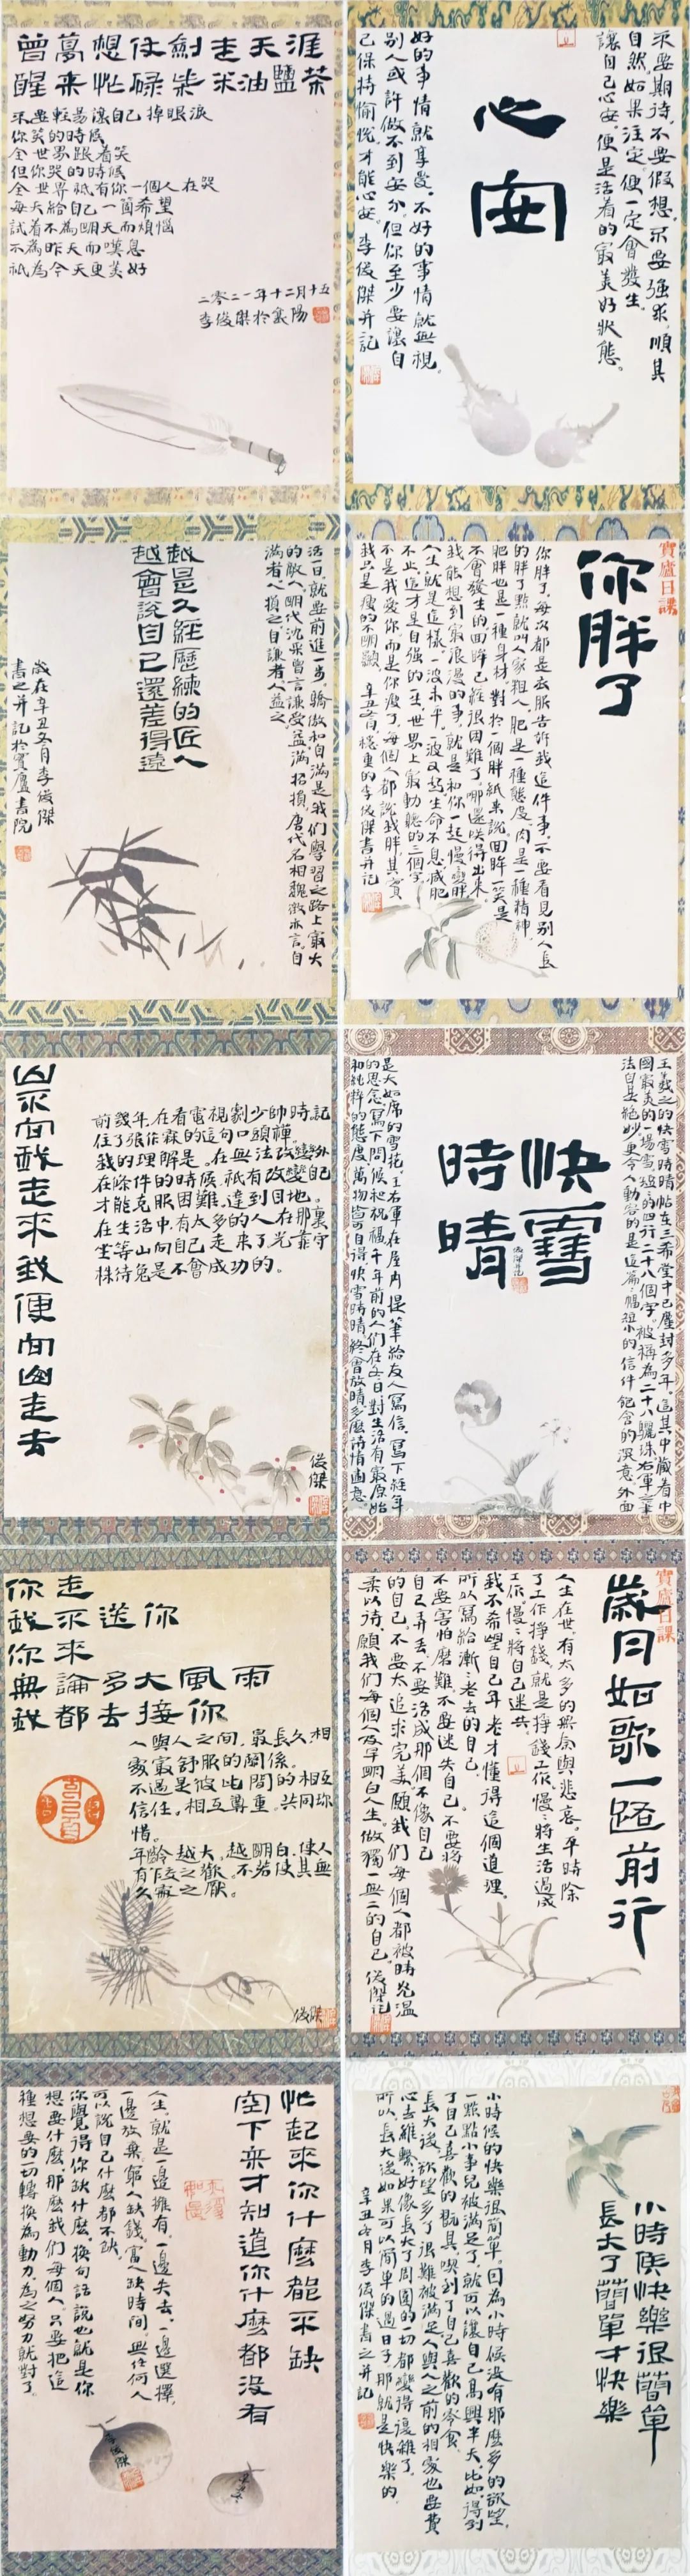 曾萬想仗劍走天涯
醒来忙碌柴米油鹽茶
不要輕易讓自己掉眼淚
你笑的時候
全世界跟着笑
但你哭的時候
全世界祇有你一個人在哭
每天給自己一箇希望
試着不為明天而煩惱
不為昨天而嘆息
祇為今天更美好
二零二一年十二月十五
李俊傑於襄陽
不要期待，不要假想，不要強求，順其
自然，如果注定，便一定會發生。
讓自己心安，便是活着的最美好狀態。
心安
好的事情就享受，不好的事情就無視。
別人或許做不到安分，但你至少要讓自
己保持愉悅，才能心安。李俊傑并記
活一日，就要前進一步，驕傲和自滿是我們學習之路上最大
的敵人，明代沈采曾言謙受益，滿招損，唐代名相魏徵亦言，自
滿者，人損之，自謙者，人益之。
越是久經歷練的匠人
越會說自己還差得遠
歲在辛丑冬月李俊傑
書之并記於寶廬書院
寶廬日課
你胖了
你胖了，每次都是衣服告訴我這件事，不要看見別人長
的胖了點就叫人家粗人，肥是一種態度，肉是一種精神，
肥胖也是一種身材，對於一個胖紙来說，回眸一笑是
不會發生的，回眸已經很困難了，哪還咲得出来。
我能想到最浪漫的事，就是和你一起慢慢變胖
人生就是這樣，一波未平，一波又起，生命不息，減肥
不止，這才是自強的一生，世界上最動聽的三個字，
不是我愛你，而是你瘦了，每個人都說我胖，其實
我只是瘦的不明顯 辛丑冬月穩重的李俊傑書并記
山不向我走來我便向山走去
前幾年，在看電視劇少帥時，記
住了張作霖的這句口頭禪，
我的理解是，在無法改變外
在條件的時候，祇有改變自己，
才能克服困難，達到目地。
在生活中，有太多的人在那裏
坐等山向自己走来了，光靠守
株待兔是不會成功的。
俊傑
王羲之的快雪時晴帖在三希堂中已塵封多年，這其中藏着中
國最美的一場雪，短短的四行二十八個字，被稱為二十八驪珠，右軍之書
法自是絕妙，更令人動容的是這篇幅短小的信件飽含的深意，外面
快雪
時晴
俊傑并記
是大如席的雪花，王右軍在屋內提筆給友人寫信，寫下經年
的思念，寫下問候和祝福，千年前的人們在冬日對生活有最原始
和純粹的態度，萬物皆可自得，快雪時晴，終會放晴，多麼詩情畫意
你走不送你
我来多大風雨
你論都去接你
無我
人與人之間，最長久相
處最舒服的關係，
不過是彼此間的相互
信任，相互尊重，共同珍
惜。
年齡越大，越明白，使人
有乍交之歡，不若使其人無
久處之厭。
俊傑
寶廬日課
歲月如歌一路前行
人生在世，有太多的無奈與悲哀，平時除
了工作掙錢，就是掙錢工作，慢慢將生活過成
工作，慢慢將自己迷失，
我不希望自己年老才懂得這個道理，
所以寫給漸漸老去的自己，
不要害怕磨難，不要迷失自己，不要將
自己弄丟，不要活成那個不像自己
的自己，不要太追求完美，願我們每個人都被時光溫
柔以待，願我們每個人及早明白人生，做獨一無二的自己。俊傑記
忙起來你什麼都不缺
空下来才知道你什麼都没有
人生，就是一邊擁有，一邊失去，一邊選擇，
一邊放棄。窮人缺錢，富人缺時間，無任何人
可以說自己什麼都不缺。
你覺得你缺什麼，換句話說也就是你
想要什麼，那麼我們每個人只要把這
種想要的一切轉換為動力，為之努力就對了。
李俊傑
小時候快樂很簡單
長大了簡單才快樂
小時候的快樂很簡單，因為小時候没有那麼多的欲望，
一點點小事兒被滿足了，就可以讓自己高興半天，比如，得到
了自己喜歡的玩具，喫到了自己喜歡的零食，
長大後，欲望多了，很難被滿足，人與人之前的相處也要費
心去維繫，好像長大了，周圍的一切都變得複雜了，
所以，長大後如果可以簡單的過日子，那就是快樂的。
辛丑冬月李俊傑書之并記